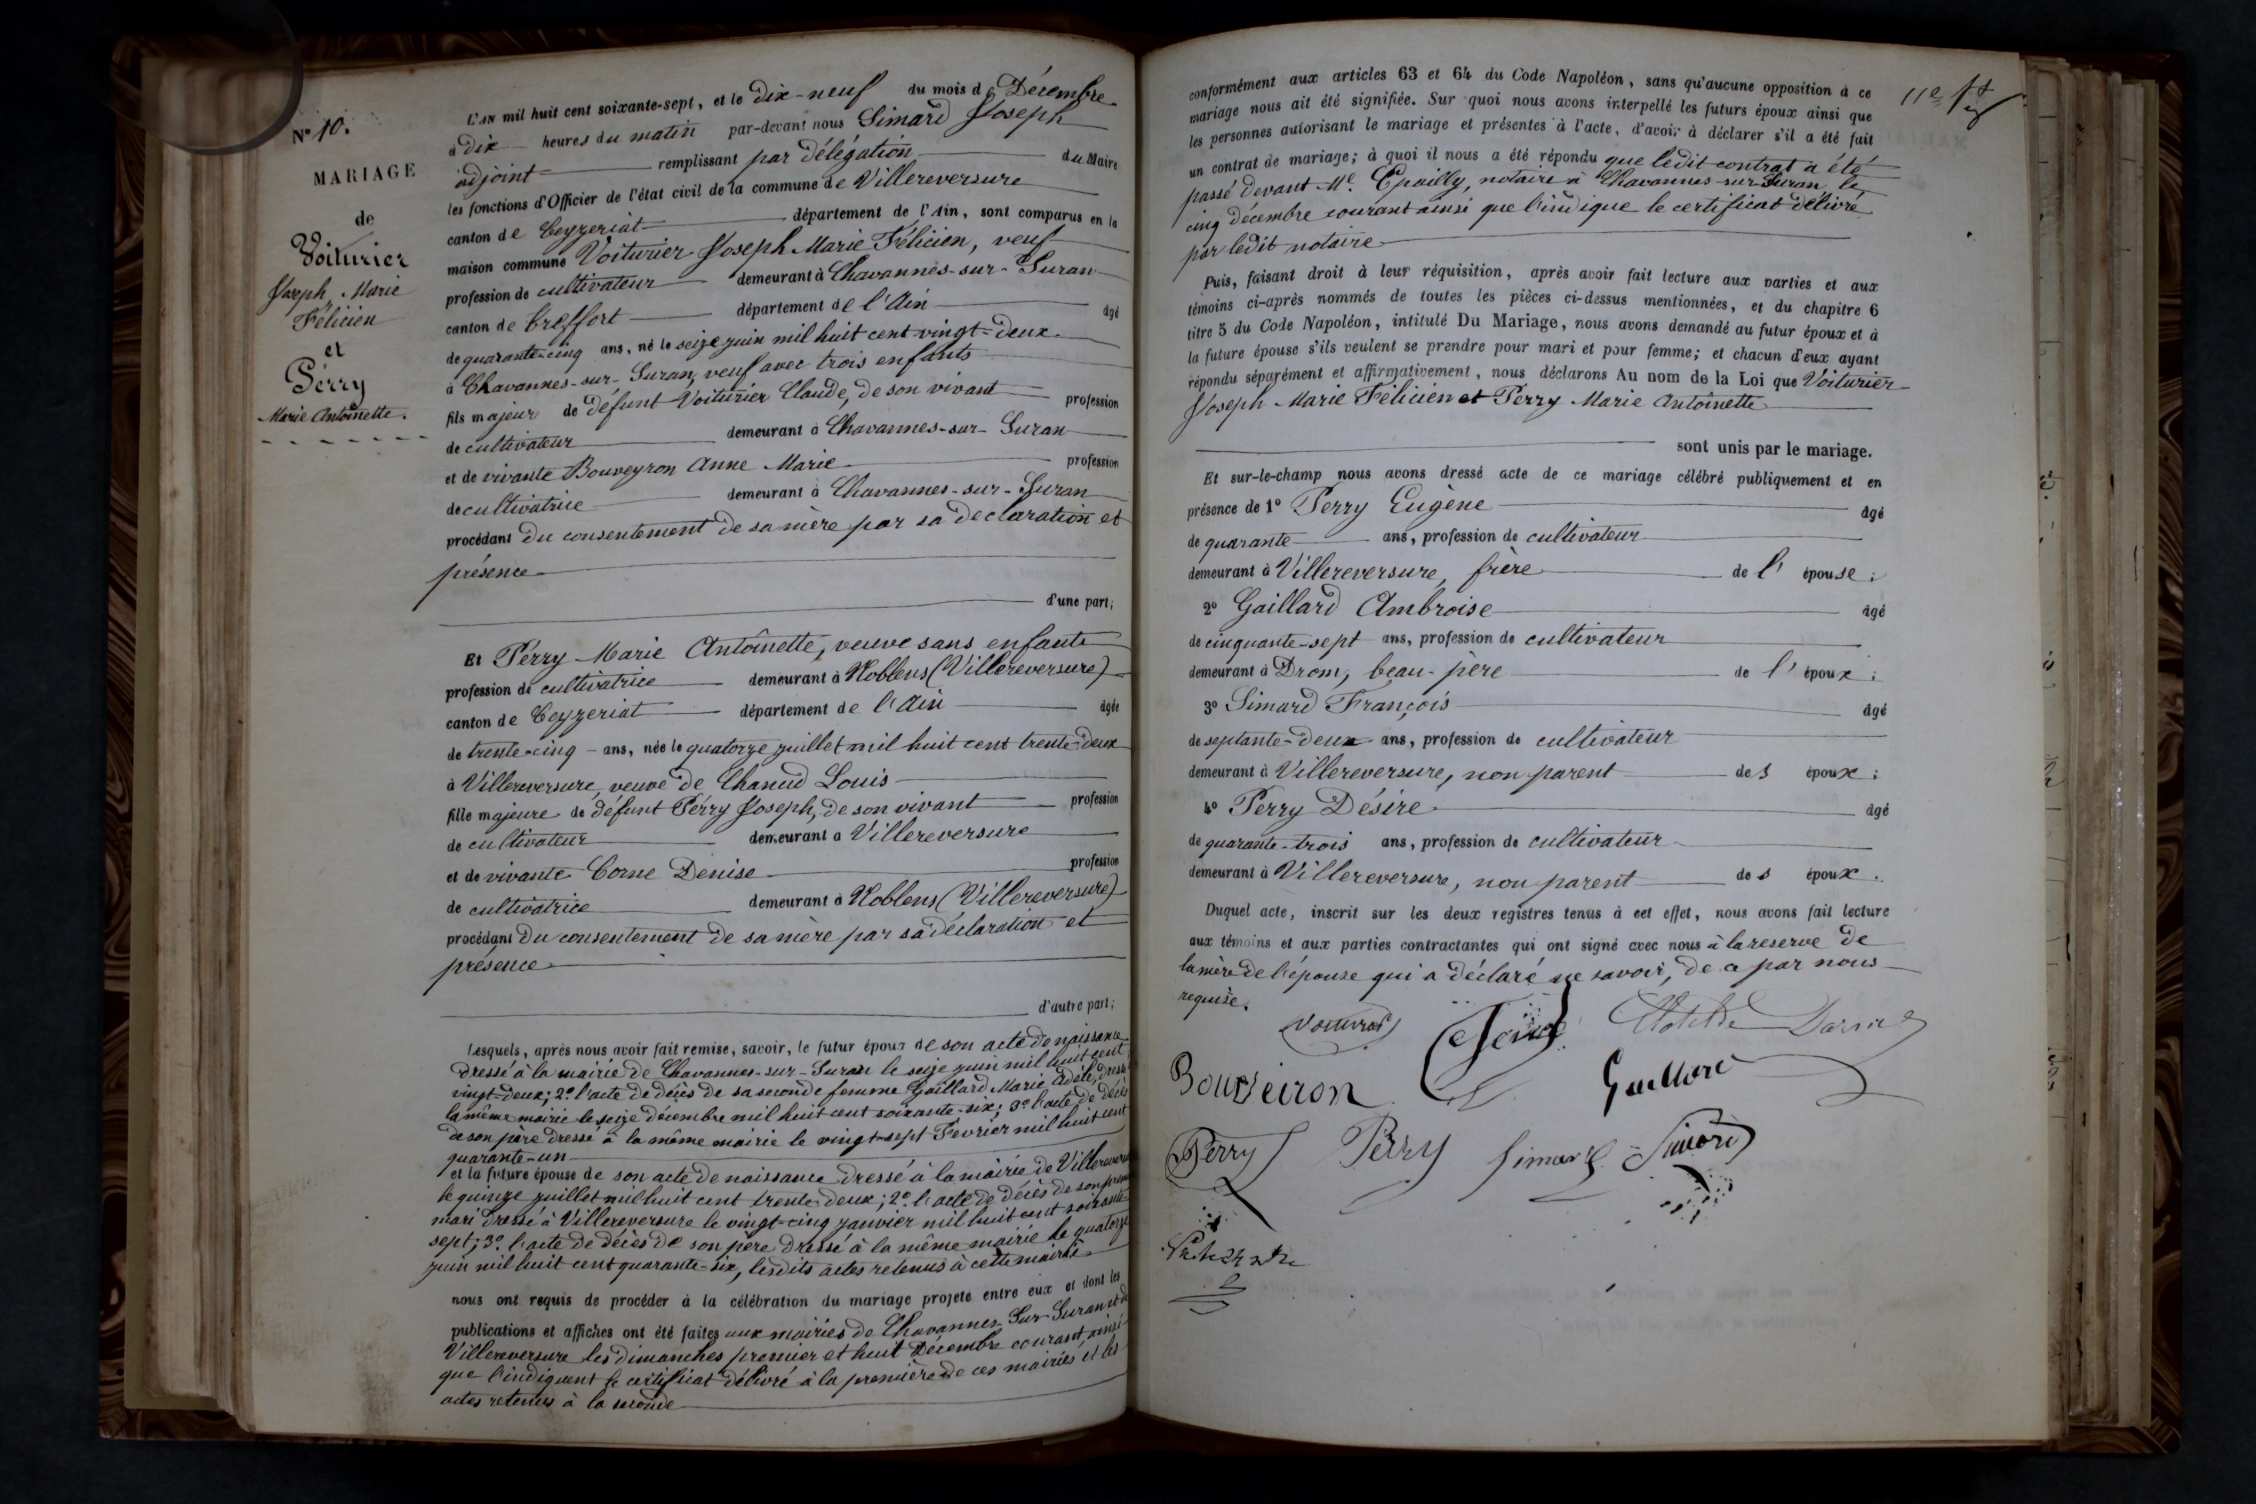 N° 10.
MARIAGE
de
Voiturier
Joseph Marie
Félicien
et
Perry
Marie Antoinette.
L'AN mil huit cent soixante-sept, et le dix-neuf du mois de Décembre
à dix heures du matin par-devant nous Simard Joseph
adjoint remplissant par délégation du Maire
les fonctions d'Officier de l'état civil de la commune de Villereversure
canton de Ceyzeriat département de l'Ain, sont comparus en la
maison commune Voiturier Joseph Marie Félicien, veuf
profession de cultivateur demeurant à Chavannes-sur-Suran
canton de Treffort département de l'Ain âgé
de quarante-cinq ans, né le seize juin mil huit cent vingt-deux
à Chavannes-sur-Suran, veuf avec trois enfants
fils majeur de défunt Voiturier Claude, de son vivant profession
de cultivateur demeurant à Chavannes-sur-Suran
et de vivante Bouveyron Anne Marie profession
de cultivatrice demeurant à Chavannes-sur-Suran
procédant du consentement de sa mère par sa déclaration et
présence
d'une part;
Et Perry Marie Antoinette, veuve sans enfants
profession de cultivatrice demeurant à Noblens (Villereversure)
canton de Ceyzeriat département de l'Ain âgée
de trente-cinq ans, née le quatorze juillet mil huit cent trente-deux
à Villereversure, veuve de Chanud Louis
fille majeure de défunt Perry Joseph, de son vivant profession
de cultivateur demeurant à Villereversure
et de vivante Corne Denise profession
de cultivatrice demeurant à Noblens (Villereversure)
procédant du consentement de sa mère par sa déclaration et
présence
d'autre part;
Lesquels, après nous avoir fait remise, savoir, le futur époux de son acte de naissance
dressé à la mairie de Chavannes-sur-Suran le seize juin mil huit cent
vingt-deux; 2° l'acte de décès de sa seconde femme Gaillard Marie Adèle, dressé
la même mairie le seize décembre mil huit cent soixante-six; 3° l'acte de décès
de son père dressé à la même mairie le vingt-sept Fevrier mil huit cent
quarante-un
et la future épouse de son acte de naissance dressé à la mairie de Villereversure
le quinze juillet mil huit cent trente deux; 2° l'acte de décès de son premier
mari dressé à Villereversure le vingt-cinq janvier mil huit cent soixante
sept; 3° l'acte de décès de son père dressé à la même mairie le quatorze
juin mil huit cent quarante-six, lesdits actes retenus à cette mairie
nous ont requis de procéder à la célébration du mariage projeté entre eux et dont les
publications et affiches ont été faites aux mairies de Chavannes-Sur-Suran et de
Villereversure les dimanches premier et huit Décembre courant, ainsi
que l'indiquent le certificat délivré à la première de ces mairies et les
actes retenus à la seconde
conformément aux articles 63 et 64 du Code Napoléon, sans qu'aucune opposition à ce
mariage nous ait été signifiée. Sur quoi nous avons interpellé les futurs époux ainsi que
les personnes autorisant le mariage et présentes à l'acte, d'avoir à déclarer s'il a été fait
un contrat de mariage; à quoi il nous a été répondu que ledit contrat a été
passé devant Me. Epailly, notaire à Chavannes-sur-Suran, le
cinq décembre courant ainsi que l'indique le certificat délivré
par ledit notaire
Puis, faisant droit à leur réquisition, après avoir fait lecture aux parties et aux
témoins ci-après nommés de toutes les pièces ci-dessus mentionnées, et du chapitre 6
titre 5 du Code Napoléon, intitulé Du Mariage, nous avons demandé au futur époux et à
la future épouse s'ils veulent se prendre pour mari et pour femme; et chacun d'eux ayant
répondu séparément et affirmativement, nous déclarons Au nom de la Loi que Voiturier
Joseph Marie Félicien et Perry Marie Antoinette
sont unis par le mariage.
Et sur-le-champ nous avons dressé acte de ce mariage célébré publiquement et en
présence de 1° Perry Eugène âgé
de quarante ans, profession de cultivateur
demeurant à Villereversure, frère de l'épouse;
2° Gaillard Ambroise âgé
de cinquante-sept ans, profession de cultivateur
demeurant à Drom, beau-père de l'époux;
3° Simard François âgé
de septante-deux ans, profession de cultivateur
demeurant à Villereversure, non parent des époux;
4° Perry Désiré âgé
de quarante-trois ans, profession de cultivateur
demeurant à Villereversure, non parent des époux.
Duquel acte, inscrit sur les deux registres tenus à cet effet, nous avons fait lecture
aux témoins et aux parties contractantes qui ont signé avec nous à la reserve de
la mère de l'épouse qui a déclaré ne savoir, de ce par nous
requise.
Bouveiron
Gaillard
Perry Perry Simard Simard